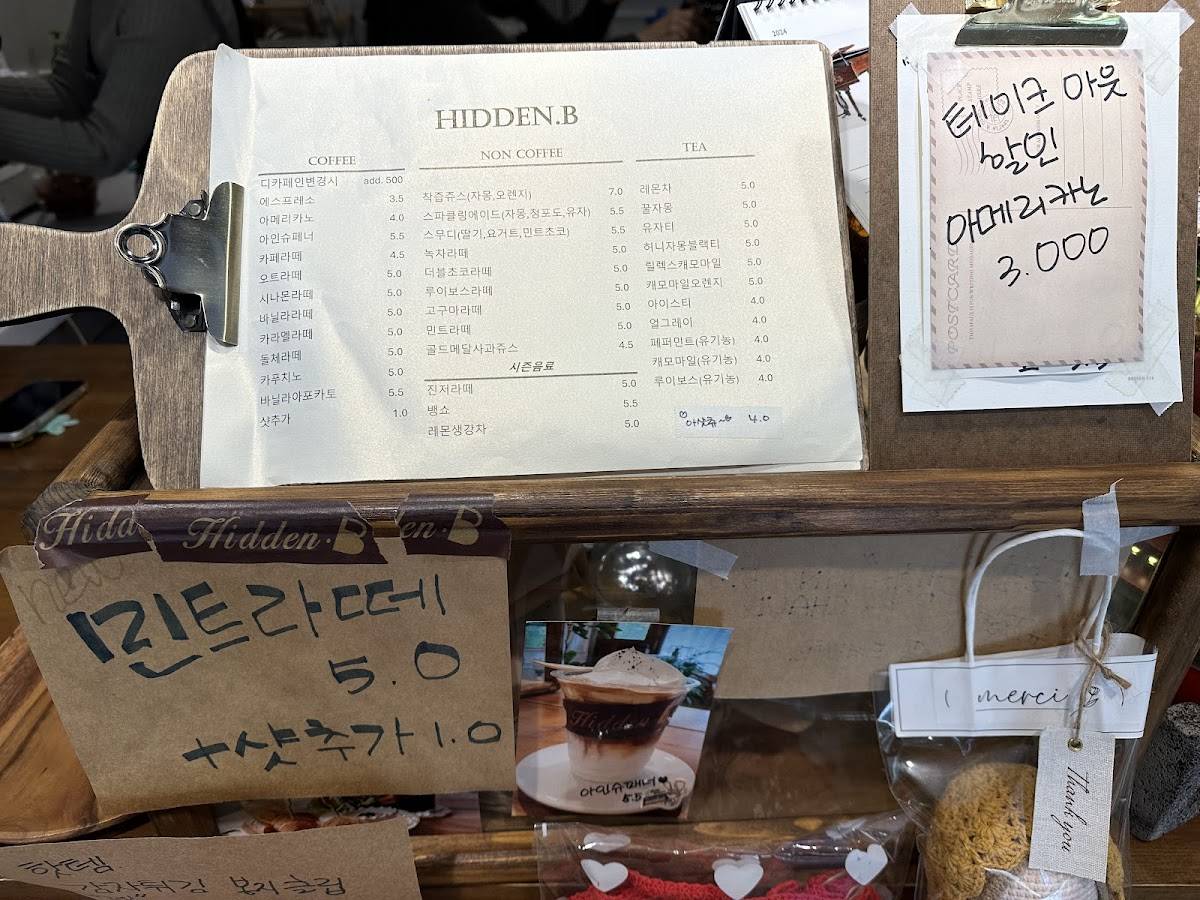 HIDDEN.B
COFFEE
디카페인변경시 add. 500
에스프레소 3.5
아메리카노 4.0
아인슈페너 5.5
카페라떼 4.5
오트라떼 5.0
시나몬라떼 5.0
바닐라라떼 5.0
카라멜라떼 5.0
돌체라떼 5.0
카푸치노 5.0
바닐라아포카토 5.5
샷추가 1.0
NON COFFEE
착즙쥬스(자몽,오렌지) 7.0
스파클링에이드(자몽,청포도,유자) 5.5
스무디(딸기,요거트,민트초코) 5.5
녹차라떼 5.0
더블초코라떼 5.0
루이보스라떼 5.0
고구마라떼 5.0
민트라떼 5.0
골드메달사과쥬스 4.5
시즌음료
진저라떼 5.0
뱅쇼 5.5
레몬생강차 5.0
TEA
레몬차 5.0
꿀자몽 5.0
유자티 5.0
허니자몽블랙티 5.0
릴렉스캐모마일 5.0
캐모마일오렌지 5.0
아이스티 4.0
얼그레이 4.0
페퍼민트(유기농) 4.0
캐모마일(유기농) 4.0
루이보스(유기농) 4.0
아샷추 4.0
2024
테이크 아웃
할인
아메리카노
3.000
POSTCARD
Hidd
Hidden.B
en.B
new
민트라떼
5.0
+샷추가 1.0
Hidden
아인슈페너
5.5
merci
Thank you
핫템
감자튀김